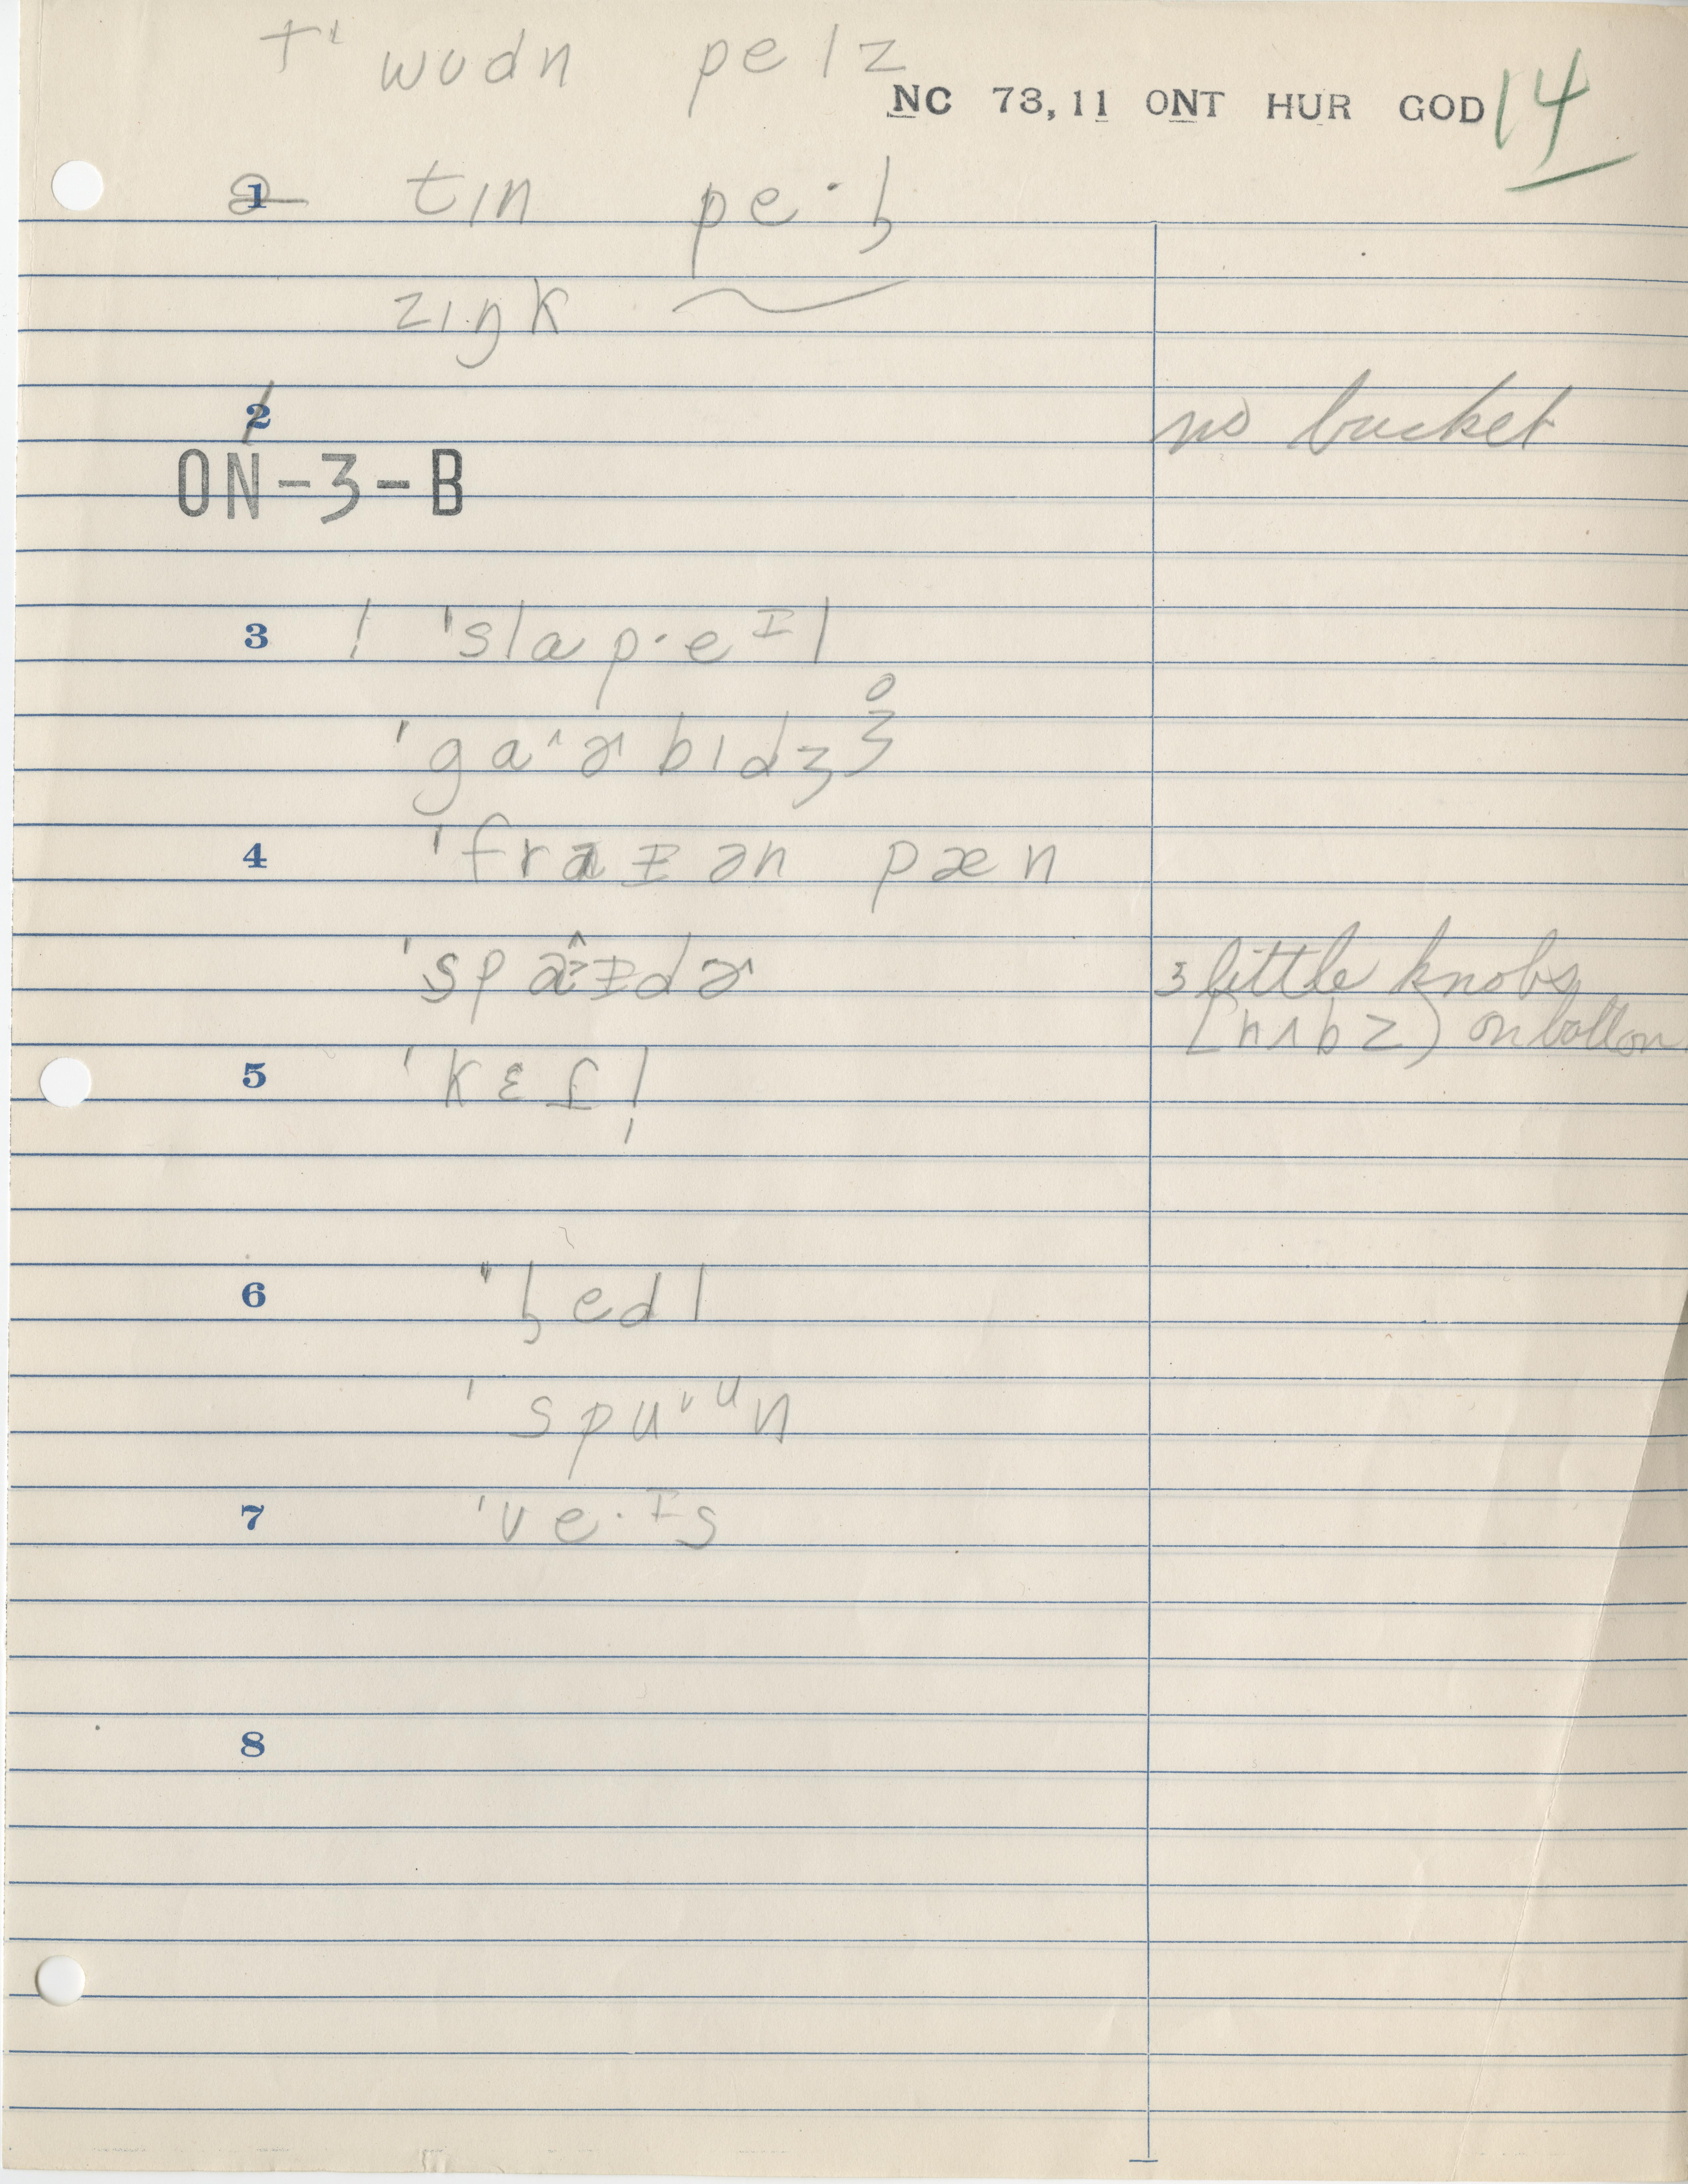 †' wudn pelz
NC 73,11 ONT HUR GOD 14
1 2 tɪn pe·ɫ
zɪŋk ~
2 1 no bucket
ON-3-B
3 ! 'slap·eᴵl
'ga˄ɚbɪdʒ
4 'fraɪən pæn
'spaɪdɚ 3 little knobs
[nʌbz] on bottom
5 'kɛtl̩
6 'ɫedl
'spu˅ᵘn
7 've·ᴵs
8